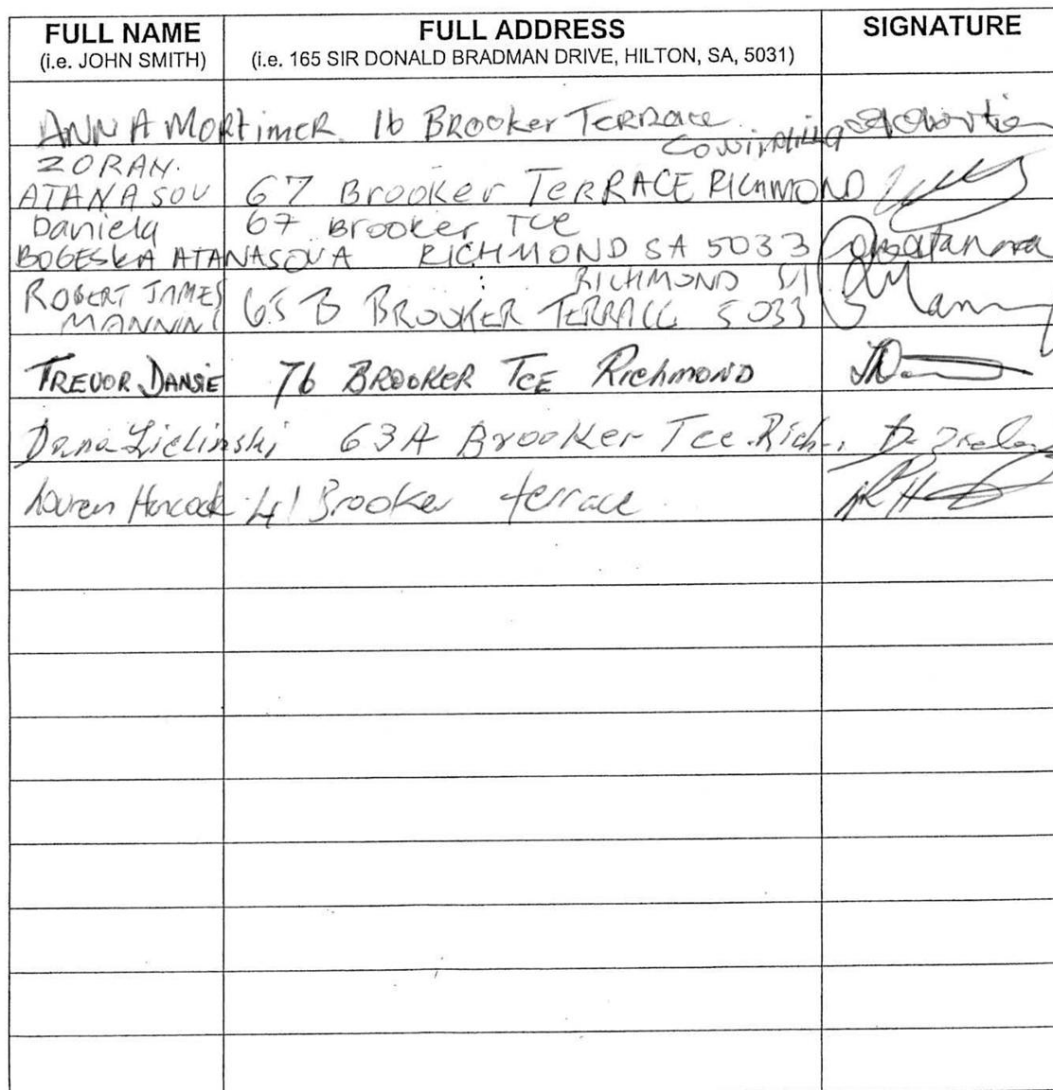 FULL NAME
(i.e. JOHN SMITH)
FULL ADDRESS
(i.e. 165 SIR DONALD BRADMAN DRIVE, HILTON, SA, 5031)
SIGNATURE
ANNA MORTimeR 16 BROOKeR TeRRace
ZORAN.
ATANASOV 67 Brooker TeRRACE RICHMOND
Daniela 67 Brooker Tce
BOGESKA ATANASOVA RICHMOND SA 5033
ROBERT JAMES RICHMOND SA
MANNING 65 B BROOKER TERRACE 5033
TREVOR DANSIE 76 BROOKER TCE RichMOND
Dana Zielinski 63A Brooker Tce. Rich.
Lauren Hancock 41 Brooker terrace